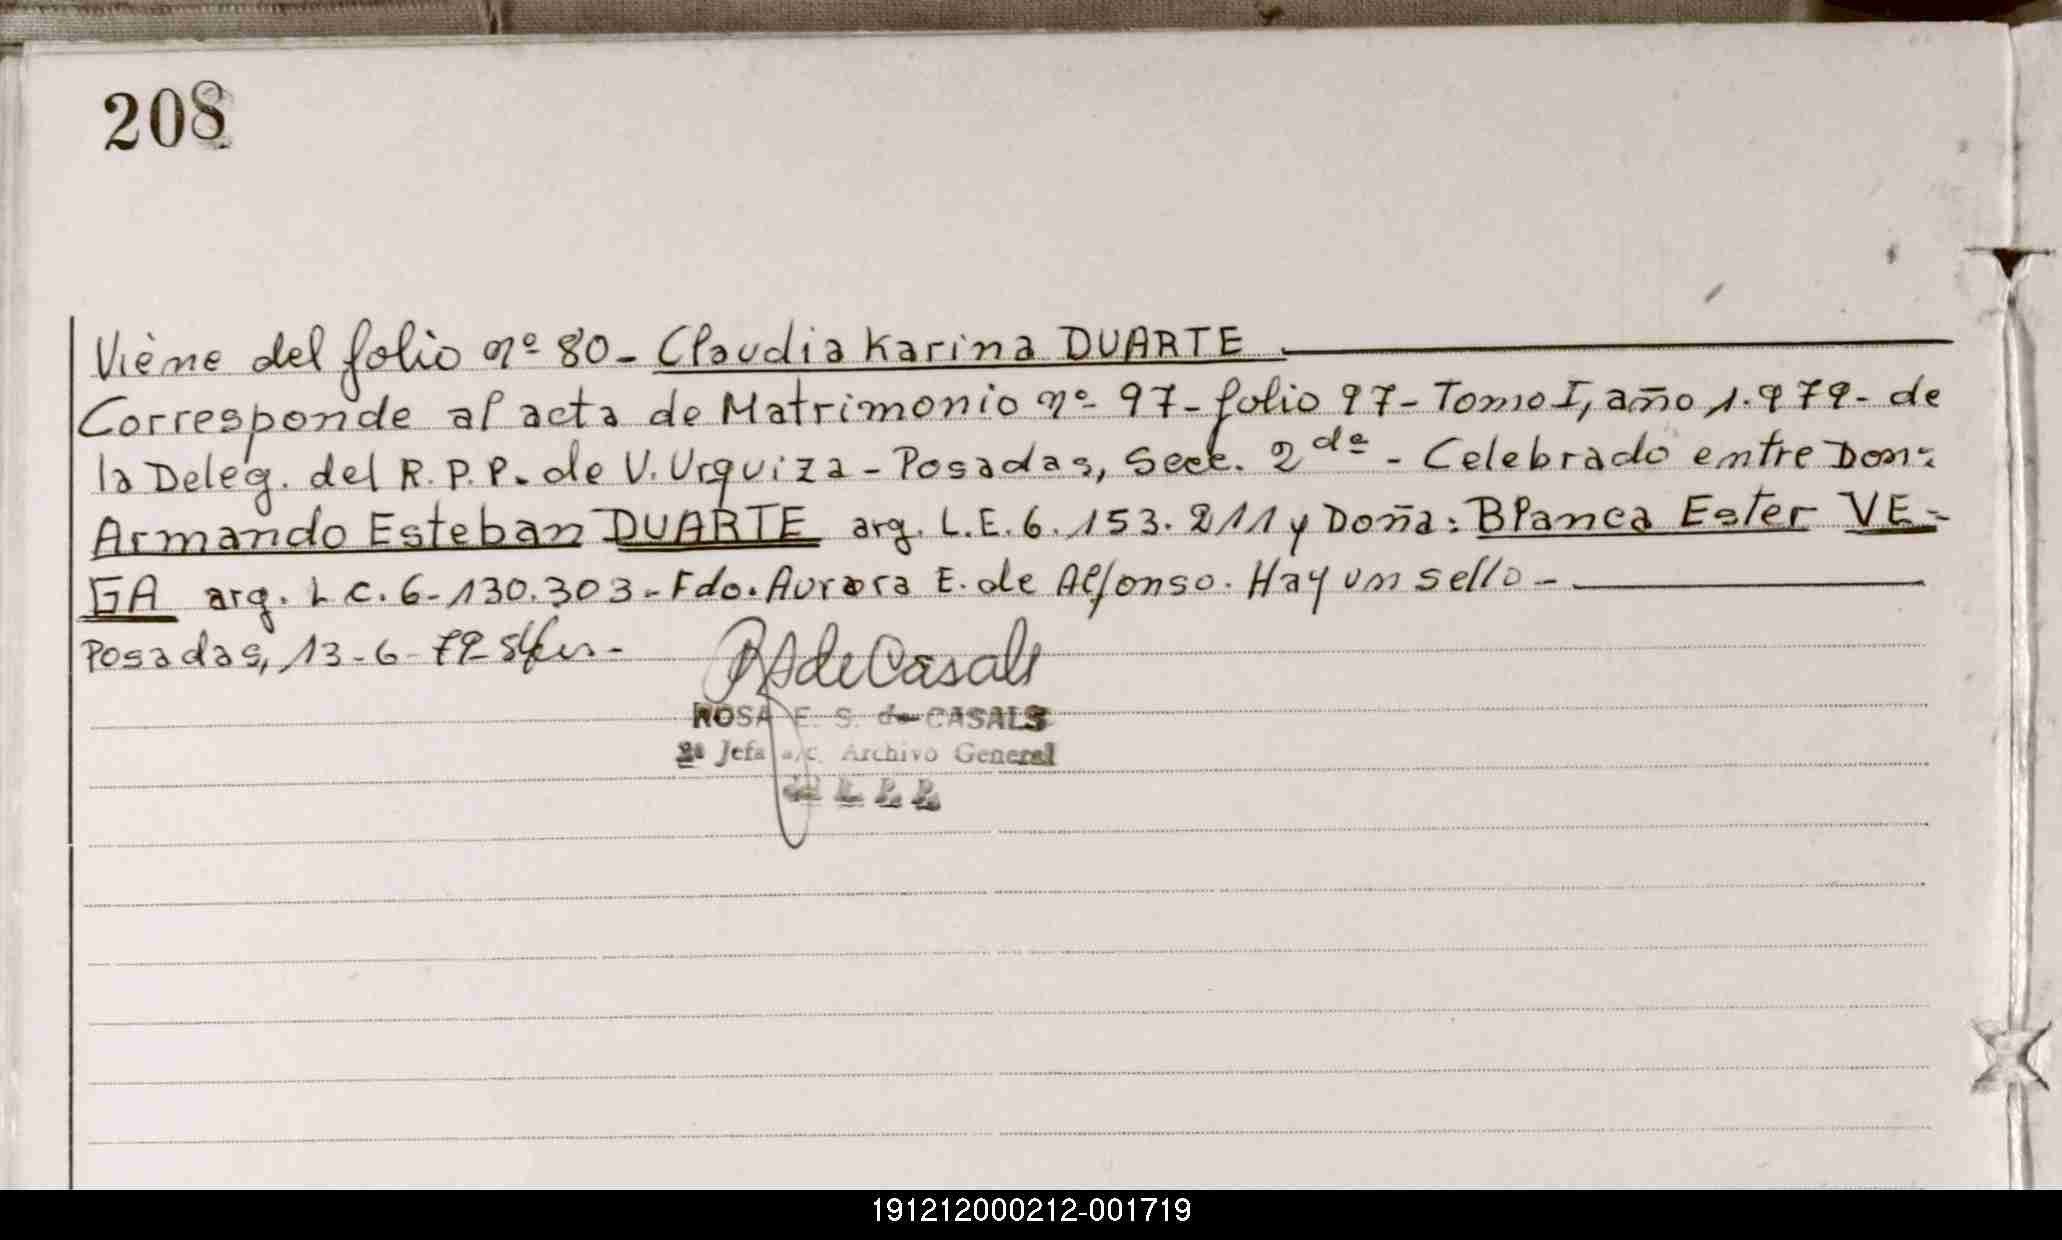 208
Viene del folio nº 80- Claudia Karina DUARTE
Corresponde al acta de Matrimonio nº 97- folio 97- Tomo I, año 1.979- de
la Deleg. del R.P.P. de V. Urquiza - Posadas, Secc. 2da - Celebrado entre Don:
Armando Esteban DUARTE arg. L.E. 6.153.211 y Doña: Blanca Ester VE-
GA arg. L C. 6-130.303- Fdo. Aurora E. de Alfonso. Hay un sello-
Posadas, 13-6-79
de Casals
ROSA E. S. de CASALS
2ª Jefa a/c. Archivo General
191212000212-001719